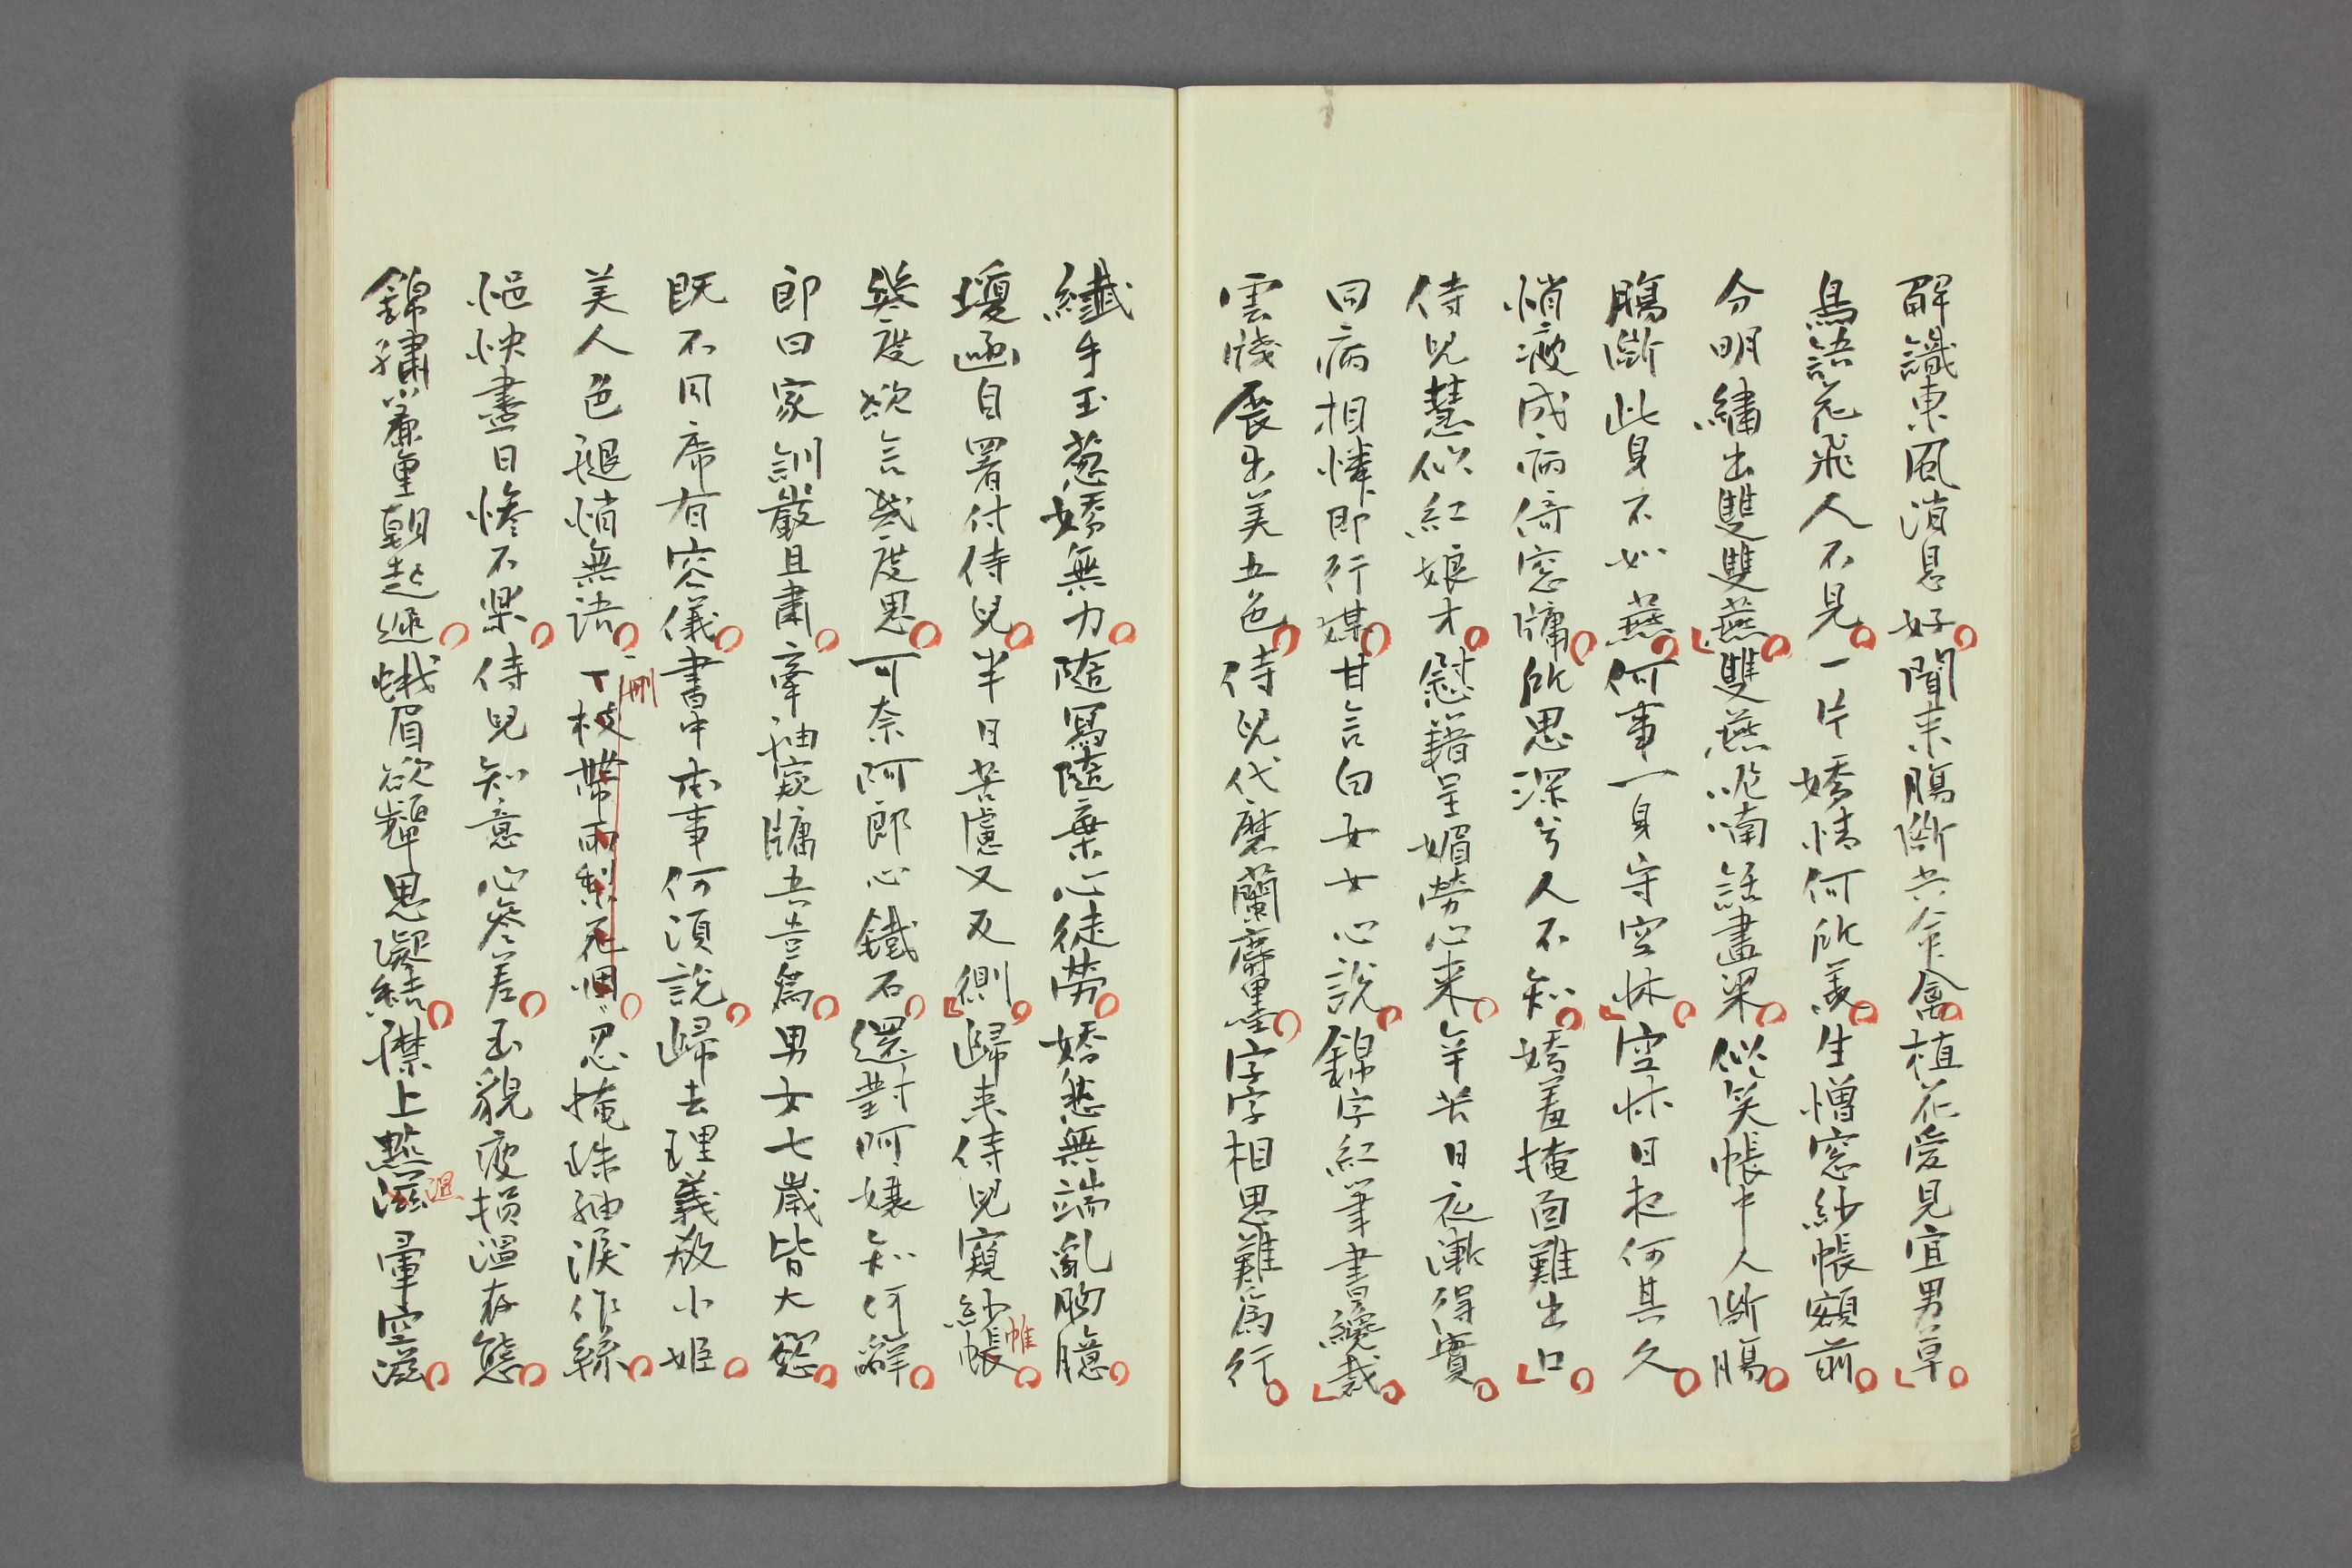 解識東風消息好聞来腸斷共命禽植花愛見宜男草
鳥語花飛人不見一片嬌情何所羨生憎窓紗帳額前
分明繡出雙雙燕雙燕呢喃話畫梁似笑帳中人斷腸
腸斷此身不如燕何事一身守空牀空牀日夜何其久
悄疲成病倚窓牖所思深兮人不知嬌羞掩面難出口
侍児慧似紅娘才慰藉呈媚勞心来辛苦日夜漸得實
同病相憐即行媒甘言白女女心説錦字紅筆書纔裁
雲牋展出美五色侍児代麼蘭麝墨字字相思難為行
纖手玉葱嬌無力隨寫隨棄心徒勞嬌愁無端亂胸臆
瓊函自署付侍児半日苦慮又反側歸来侍児窺紗帳
帷
幾度欲言幾度思可奈阿郎心鐵石還對阿孃知何辭
郎曰家訓嚴且肅牽袖窺牖吾豈為男女七歳皆大慾
既不同席有容儀書中本事何須説歸去理義教小姬
美人色褪悄無語一枝帶雨梨花個忍掩珠袖淚作絲
刪
悒怏盡日慘不樂侍児知意心參差玉貌疲損溫存態
錦繡簾重朝起遲蛾眉欲顰思凝結襟上點滋暈空滋
濕